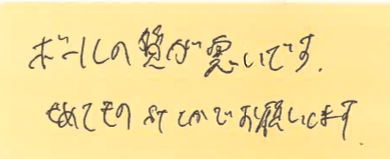 ボールの質が悪いです.
せめてその でお願いします.